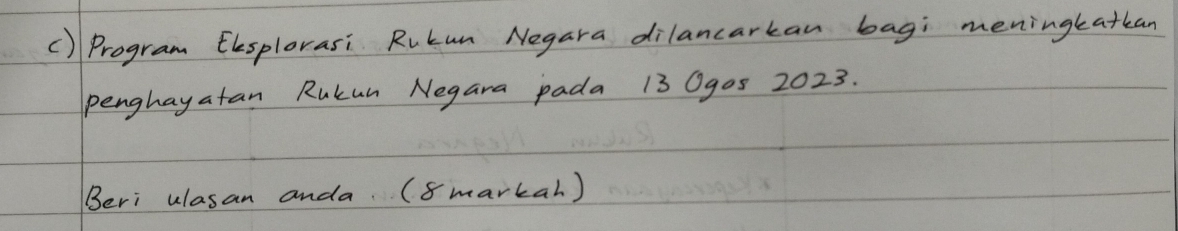 c) Program Eksplorasi Rukun Negara dilancarkan bagi meningkatkan
penghayatan Rukun Negara pada 13 Ogos 2023.
Beri ulasan anda. (8 markah)